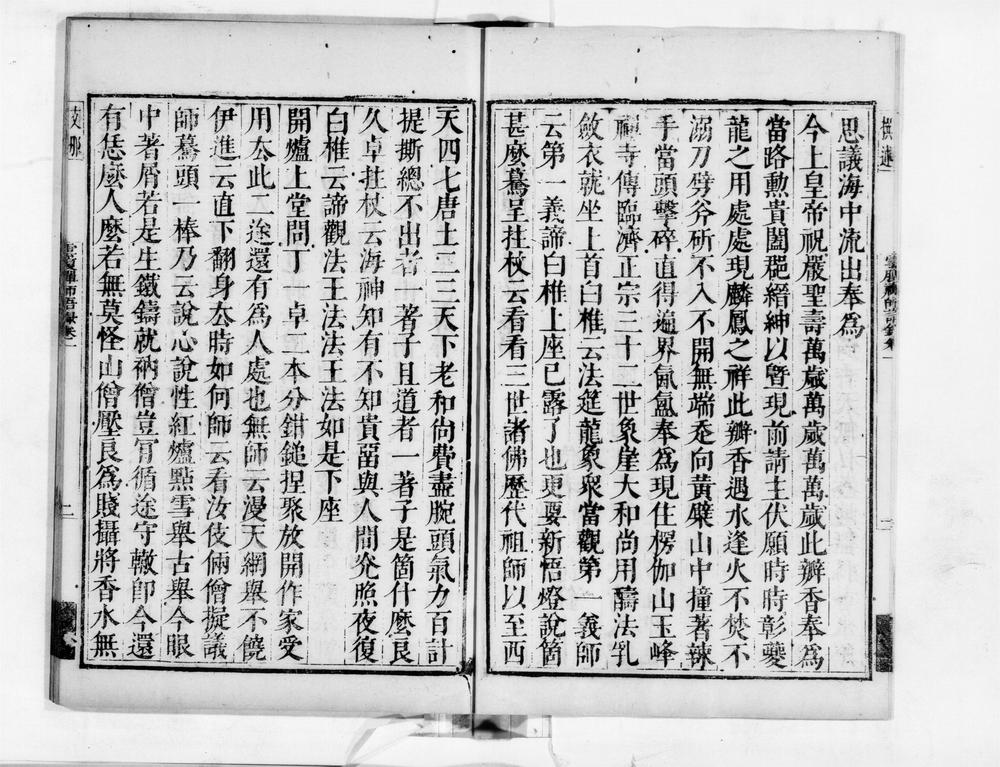 思議海中流出奉爲
今上皇帝祝嚴聖壽萬歲萬歲萬萬歲此瓣香奉爲
當路勳貴闔郡縉紳以曁現前請主伏願時時彰夔
龍之用處處現麟鳳之祥此瓣香遇水逢火不焚不
溺刀劈斧斫不入不開無端走向黃檗山中撞著辣
手當頭擊碎直得遍界氤氳奉爲現住楞伽山玉峰
禪寺傳臨濟正宗三十二世象崖大和尚用醻法乳
斂衣就坐上首白椎云法筵龍象衆當觀第一義師
云第一義諦白椎上座已露了也更要新悟燈說箇
甚麼驀呈拄杖云看看三世諸佛歷代祖師以至西
天四七唐土二三天下老和尚費盡腕頭氣力百計
提撕總不出者一著子且道者一著子是箇什麼良
久卓拄杖云海神知有不知貴畱與人間光照夜復
白椎云諦觀法王法法王法如是下座
開爐上堂問丁一卓二本分鉗鎚捏聚放開作家受
用去此二途還有爲人處也無師云漫天網舉不饒
伊進云直下翻身去時如何師云看汝伎倆僧擬議
師驀頭一棒乃云說心說性紅爐點雪舉古舉今眼
中著屑若是生鐵鑄就衲僧豈肎循途守轍卽今還
有恁麼人麼若無莫怪山僧壓良爲賤攝將香水無
支那
二